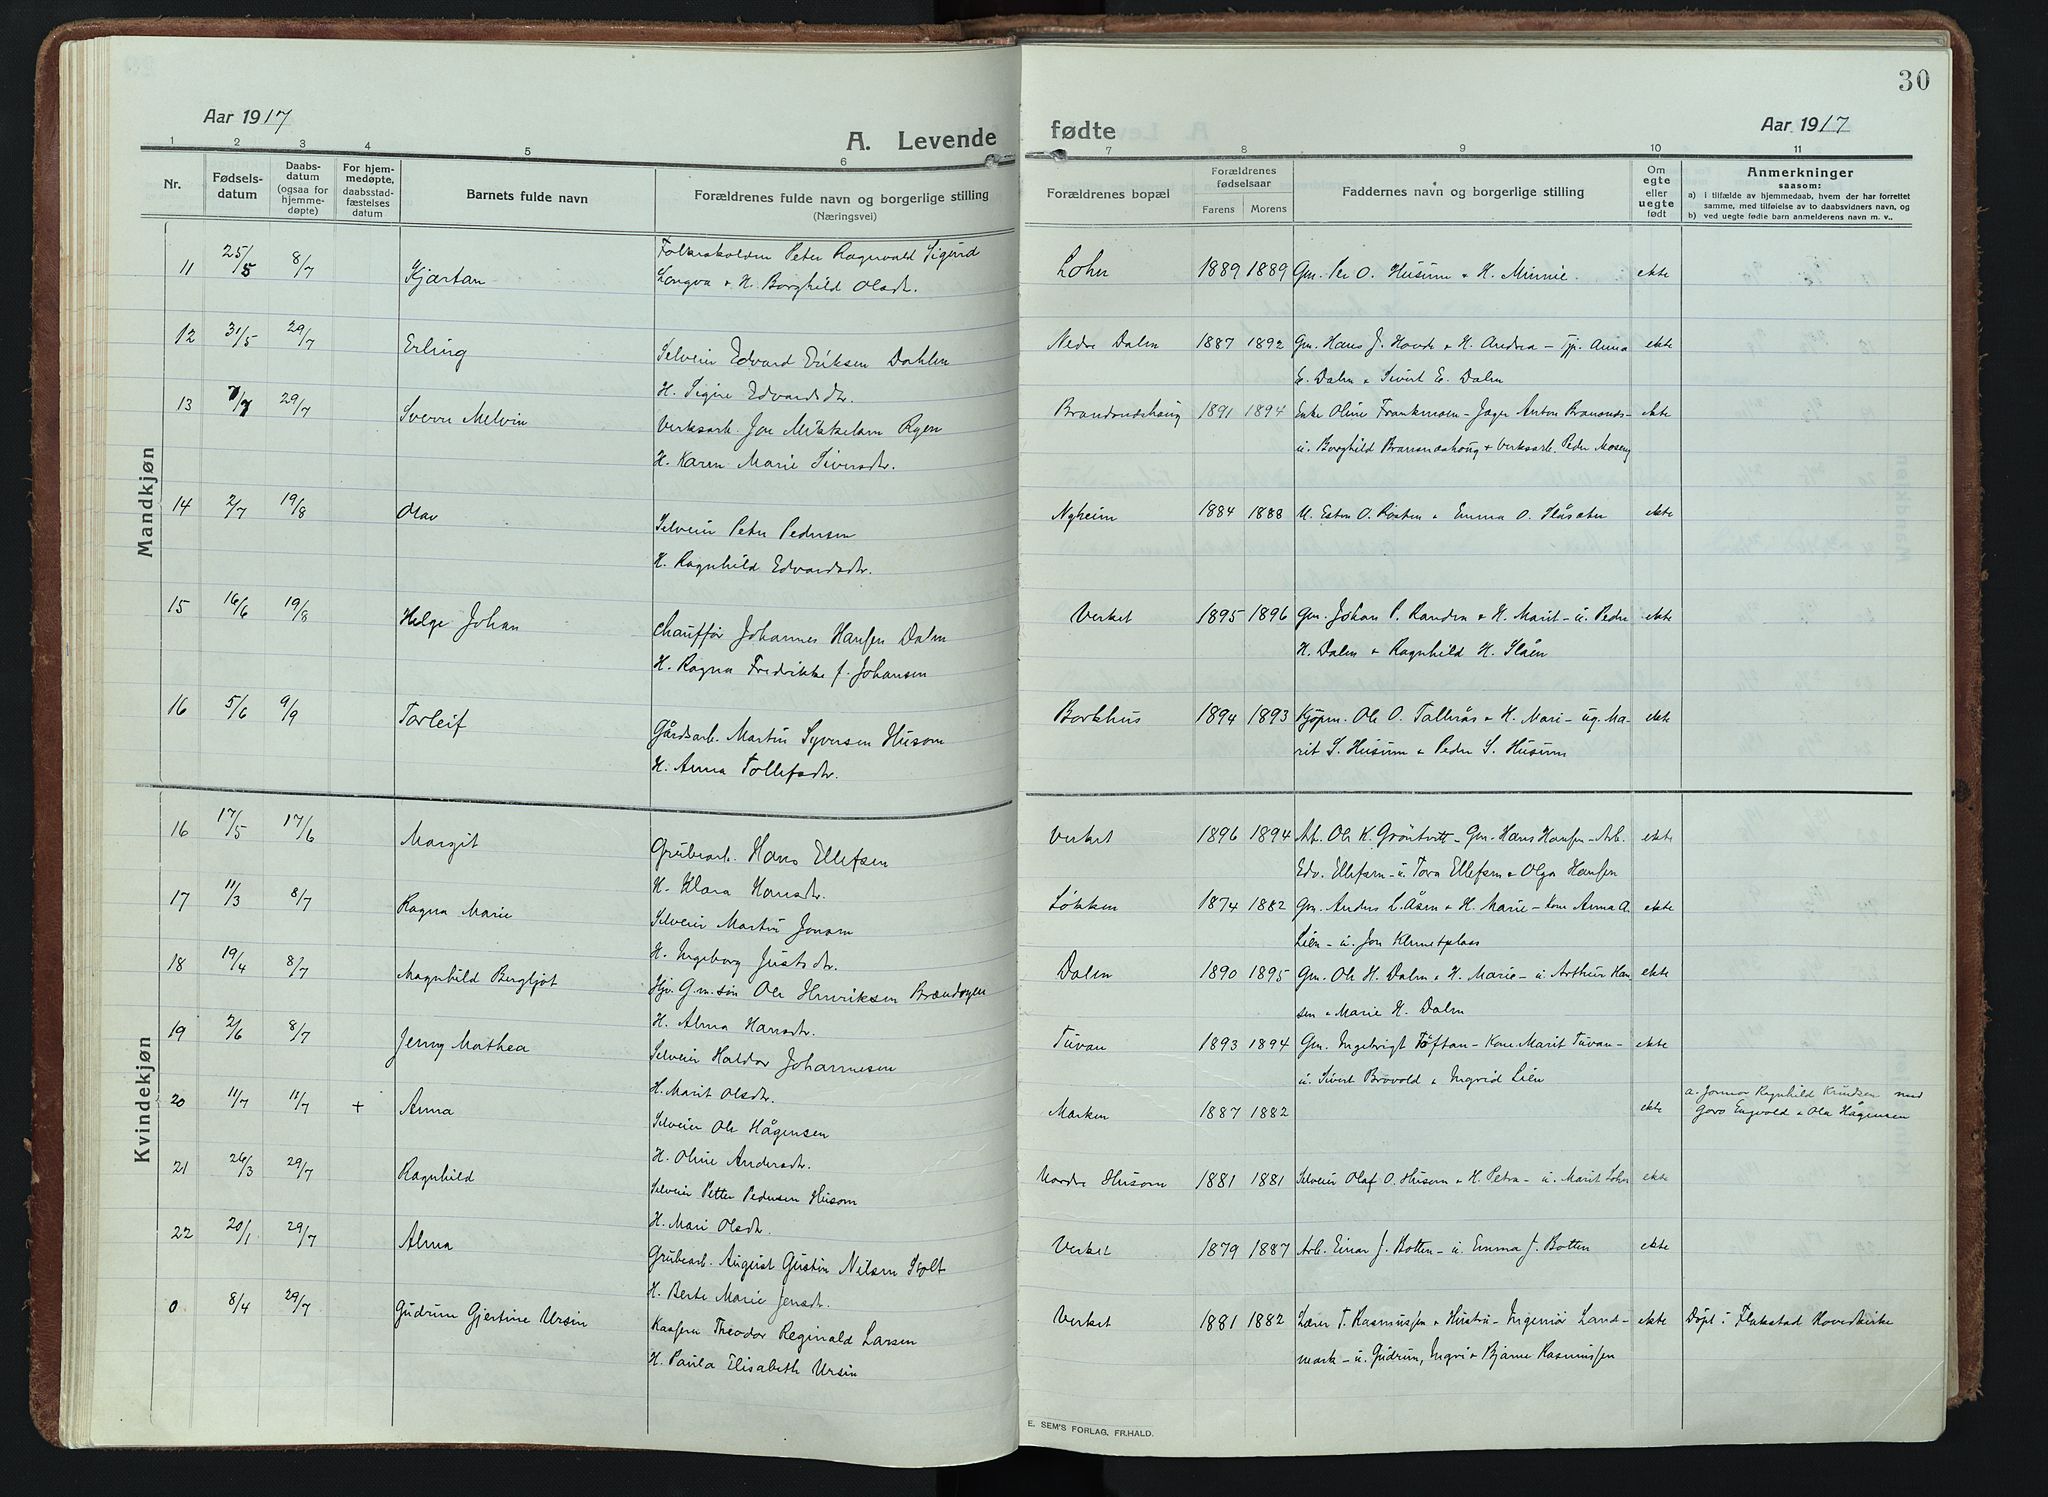 30
Aar 1917
A. Levende fødte
Aar 1917
1 2 3 4 5 6 7 8 9 10 11
Nr.
Fødsels-
datum
Daabs-
datum
(ogsaa for
hjemme-
døpte)
For hjem-
medøpte,
daabsstad-
fæstelses
datum
Barnets fulde navn
Forældrenes fulde navn og borgerlige stilling
(Næringsvei)
Forældrenes bopæl
Forældrenes
fødselsaar
Farens Morens
Faddernes navn og borgerlige stilling
Om
egte
eller
uegte
født
Anmerkninger
saasom:
a) i tilfælde av hjemmedaab, hvem der har forrettet
samme, med tilføielse av to daabsvidners navn, og
b) ved uegte fødte barn anmelderens navn m. v..
Mandkjøn
11 25/5 8/7 Kjartan
Peter Ragnvald Sigurd
Longva & H. Borghild Olsdr.
1889 1889 Gm. Per O. Husum & H. Minnie. ekte
12 31/5 29/7 Erling
Selveier Edvard Eriksen Dahlen
H. Signe Edvardsdr.
Nedre Dalen 1887 1892 Gm. Hans J. Hovde & H. Andrea - Anna ekte
E. Dalen & Sivert E. Dalen
13 7/7 29/7 Sverre Melvin
Verksarb. Jon Mikkelsen Ryen
H. Karen Marie Siversdr.
Brandsnæshaug 1891 1894 Enke Oline Frankmoen - Anton ekte
u. Borghild & Verksarb. Peder Moseng
14 2/7 19/8 Olav
Selveier Peter Pedersen
H. Ragnhild Edvardsdr.
Nyheim 1884 1888 U. Esten O. Røsten & Emma O. Slåsæter ekte
15 16/6 19/8 Helge Johan
Chauffør Johannes Hansen Dalen
H. Ragna Fredrikke f. Johansen
Verket 1895 1896 Gm. Johan P. Randen & H. Marit - u. Peder ekte
H. Dalen & Ragnhild H. Slåen
16 5/6 9/9 Torleif
Gårdsarb. Martin Syversen Husom
H. Anna Tollefsdr.
Borkhus 1894 1893 Kjøpm. Ole O. Tallerås & H. Mari - ug. Ma- ekte
rit S. Husum & Peder S. Husum
Kvindekjøn
16 17/5 17/6 Margit
Grubearb. Hans Ellefsen
H. Klara Hansdr.
Verket 1896 1894 Arb. Ole K. Grøntvitt - Gm. Hans Hansen - Arb. ekte
Edv. Ellefsen - u. Tora Ellefsen & Olga Hansen
17 11/3 8/7 Ragna Marie
Selveier Martin Jonsen
H. Ingeborg Justsdr.
Løkken 1874 1882 Gm. Anders L. Åsen & H. Marie - Kone Anna A. ekte
Lien - u. Jon Klemetplass
18 19/4 8/7 Magnhild Bergljot
Hjv. G.m.søn Ole Henriksen Brændryen
H. Alma Hansdr.
Dalen 1890 1895 Gm. Ole H. Dalen & H. Marie - u. Arthur Han ekte
sen & Marie H. Dalen
19 2/6 8/7 Jenny Mathea
Selveier Haldor Johannesen
H. Marit Olsdr.
Tuvan 1893 1894 Gm. Ingebrigt Tøftan - Kone Marit Tuvan - ekte
u. Sivert Brovold & Ingrid Lien
20 11/7 11/7 + Anna
Selveier Ole Hågensen
H. Oline Andersdr.
Marken 1887 1882 ekte
a. Jormor Ragnhild Knudsen med
Goro Engvold & Ole Hågensen
21 26/3 29/7 Ragnhild
Selveier Petter Pedersen Husom
H. Mari Olsdr.
Nordre Husom 1881 1881 Selveier Olaf O. Husom & H. Petra - u. Marit ekte
22 20/1 29/7 Alma
Grubearb. August Gustav Nilsen Stolt
H. Berte Marie Jensdr.
Verket 1879 1887 Arb. Einar J. Botten - u. Emma J. Botten ekte
0 8/4 29/7 Gudrun Gjertine Ursin
Kasserer Theodor Reginald Larsen
H. Paula Elisabeth Ursin
Verket 1881 1882 Lærer T. Rasmussen & Hustru - Ingeniør Land- ekte Døpt i Flakstad Hovedkirke
mark - u. Gudrun, Ingri & Bjarne Rasmussen
E. SEM'S FORLAG, FR.HALD.